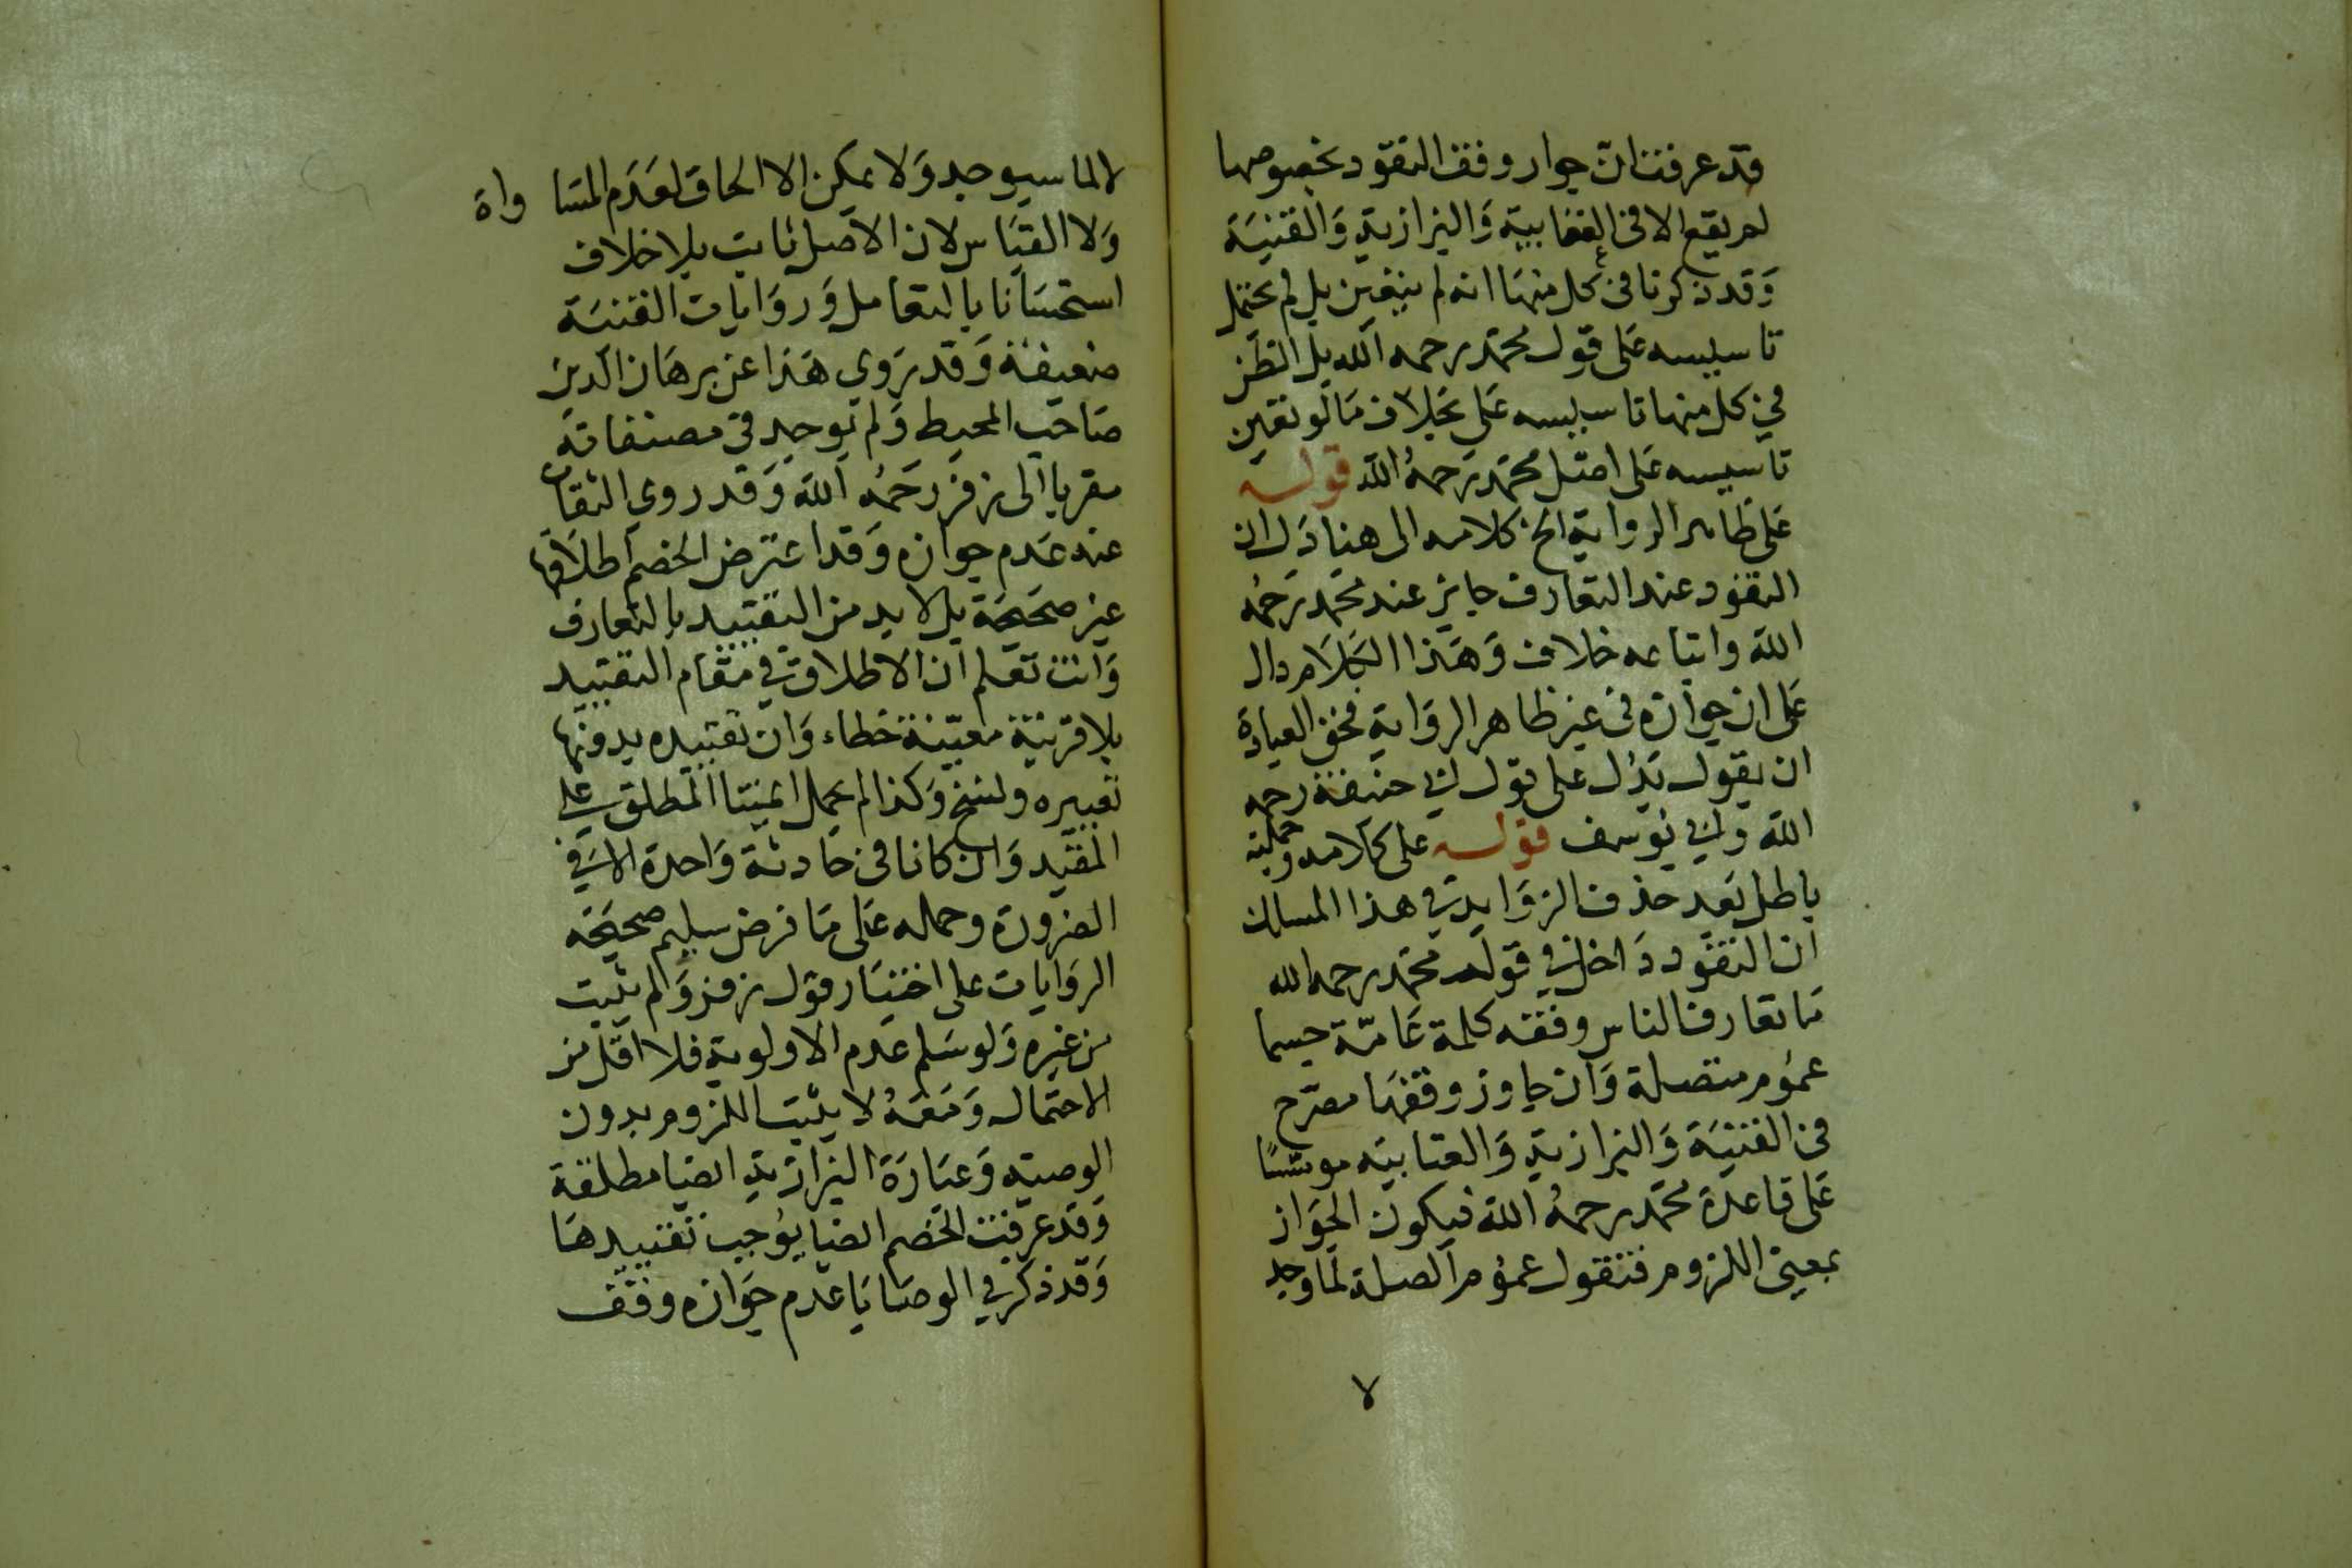 قد عرفت ان جواز وقف النقود بخصوصها
لم يقع الا في العتابية وَالبزازية وَالقنيَة
وَقد ذكرنا في كل منهَا انه لم يتعين بل لم يحتمل
تاسيسه عَلى قول محمّد رحمه الله بل الظن
في كل منها تاسيسه عَلى خلاف مَا لو تعين
تاسيسه عَلى اصل محمّد رَحمهُ الله قوله
عَلى ظاهر الرواية الخ كلامه الى هنا دَل ان
النقود عند التعارف جايز عند محمّد رَحمهُ
الله واتباعه خلاف وَهَذا الكلَام دال
عَلى ان جوازه في غير ظاهر الروَاية فحق العبارة
ان يقول يَدل على قول ابي حنيفة رحمه
الله وابي يُوسف قوله على كلامه وحملته
باطل بَعد حذف الزوَايد في هذا المسالك
ان النقود دَاخل في قول محمّد رحمه الله
مَا تعارف الناس وقفه كلمة عَامّة حيسما
عمُوم متصلة وَان جاوز وقفهَا مصرّح
في القنيَة وَالبزازية وَالعتابيَه موسّسًا
عَلى قاعدَة محمّد رحمهُ الله فيكون الجوَاز
بمعنى اللزوم فنقول عمُوم الصلة لما وجد
لا
لا لما سيوجد وَلا يمكن الا الحاق لعَدَم المسَاواة
وَلا القيَاس لان الاصل ثابت بلا خلاف
استحسَانا بالتعامل وَروَايات القنيَة
ضعيفة وَقد يَروي هَذا عن برهَان الدين
صَاحب المحيط وَلم يوجد في مصنفاته
مقربا الى زفر رَحمَه الله وَقد روي الثقات
عنه عَدم جوازه وَقد اعترض الخصم اطلاقها
غير صحَيحَة بل لا بد من التقييد بالتعارف
وَانت تعلم ان الاطلاق في مقام التقييد
بلا قرينة معيّنة خطاء وَان تقييده بدونها
تغييره ونسخ وَكذا لم يحمل ايمتنا المطلق على
المقيّد وَان كانا في حادثة وَاحدة الا في
الضرورة وحمله عَلى مَا فرض سليم صحيحَه
الروَايات على اختيَار قول زفر وَالم يثبت
من غيره وَلو سَلم عدم الاولوية فلا اقل من
الاحتمال وَمَعَهُ لا يثبت اللزوم بدون
الوصيّه وَعبَارَة البزازية ايضا مطلقة
وَقد عرفت الخصم ايضا يُوجب تقييدهَا
وَقد ذكر في الوصَايَا عدم جَوازه وقف